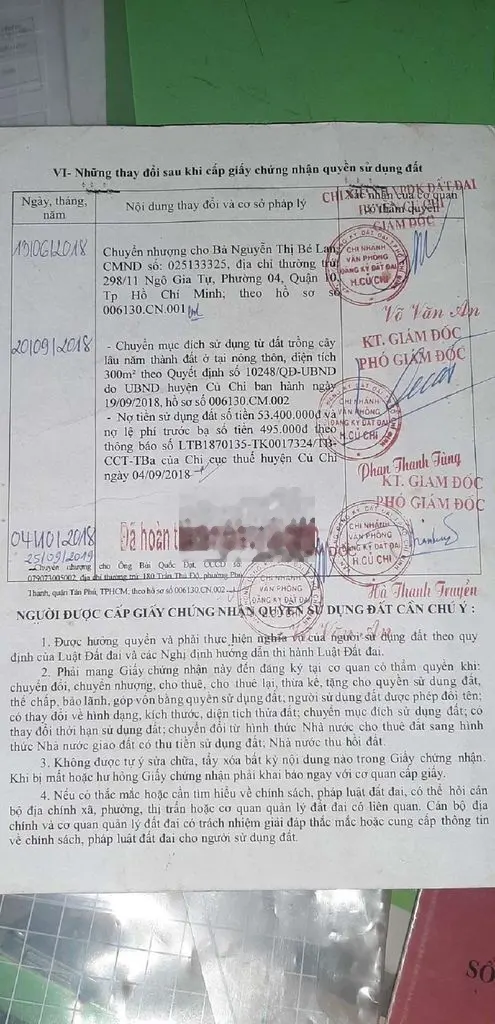 VI- Những thay đổi sau khi cấp giấy chứng nhận quyền sử dụng đất
Ngày, tháng, năm
Nội dung thay đổi và cơ sở pháp lý
Xác nhận của cơ quan
có thẩm quyền
ĐẤT ĐAI
GIÁM ĐỐC
19/06/2018
Chuyển nhượng cho Bà Nguyễn Thị Bé Lan,
CMND số: 025133325, địa chỉ thường trú
298/11 Ngô Gia Tự, Phường 04, Quận 10,
Tp Hồ Chí Minh; theo hồ sơ số
006130.CN.001
CHI NHÁNH
VĂN PHÒNG
ĐĂNG KÝ ĐẤT ĐAI
H.CỦ CHI
Võ Văn An
20/09/2018
- Chuyển mục đích sử dụng từ đất trồng cây
lâu năm thành đất ở tại nông thôn, diện tích
300m² theo Quyết định số 10248/QĐ-UBND
do UBND huyện Củ Chi ban hành ngày
19/09/2018, hồ sơ số 006130.CM.002
- Nợ tiền sử dụng đất số tiền 53.400.000đ và
nợ lệ phí trước bạ số tiền 495.000đ theo
thông báo số LTB1870135-TK0017324/TB-
CCT-TBa của Chi cục thuế huyện Củ Chi
ngày 04/09/2018
KT. GIÁM ĐỐC
PHÓ GIÁM ĐỐC
CHI NHÁNH
VĂN PHÒNG
ĐĂNG KÝ ĐẤT ĐAI
H.CỦ CHI
Phan Thanh Tùng
KT. GIÁM ĐỐC
PHÓ GIÁM ĐỐC
04/10/2018
Đã hoàn
CHI NHÁNH
VĂN PHÒNG
ĐĂNG KÝ ĐẤT ĐAI
H.CỦ CHI
Hà Thanh Truyền
25/09/2019
Chuyển nhượng cho Ông Bùi Quốc Đạt, CCCD số
079073005002, địa chỉ thường trú: 180 Trần Thủ Độ, phường Phú
Thạnh, quận Tân Phú, TPHCM, theo hồ sơ số 006130.CN.002
CHI NHÁNH
VĂN PHÒNG
ĐĂNG KÝ ĐẤT ĐAI
NGƯỜI ĐƯỢC CẤP GIẤY CHỨNG NHẬN QUYỀN SỬ DỤNG ĐẤT CẦN CHÚ Ý :
1. Được hưởng quyền và phải thực hiện nghĩa vụ của người sử dụng đất theo quy
định của Luật Đất đai và các Nghị định hướng dẫn thi hành Luật Đất đai.
2. Phải mang Giấy chứng nhận này đến đăng ký tại cơ quan có thẩm quyền khi:
chuyển đổi, chuyển nhượng, cho thuê, cho thuê lại, thừa kê, tặng cho quyền sử dụng đất,
thế chấp, bảo lãnh, góp vốn bằng quyền sử dụng đất; người sử dụng đất được phép đổi tên;
có thay đổi về hình dạng, kích thước, diện tích thửa đất; chuyển mục đích sử dụng đất; có
thay đổi thời hạn sử dụng đất; chuyển đổi từ hình thức Nhà nước cho thuê đất sang hình
thức Nhà nước giao đất có thu tiền sử dụng đất; Nhà nước thu hồi đất.
3. Không được tự ý sửa chữa, tẩy xóa bất kỳ nội dung nào trong Giấy chứng nhận.
Khi bị mất hoặc hư hỏng Giấy chứng nhận phải khai báo ngay với cơ quan cấp giấy.
4. Nếu có thắc mắc hoặc cần tìm hiểu về chính sách, pháp luật đất đai, có thể hỏi cán
bộ địa chính xã, phường, thị trấn hoặc cơ quan quản lý đất đai có liên quan. Cán bộ địa
chính và cơ quan quản lý đất đai có trách nhiệm giải đáp thắc mắc hoặc cung cấp thông tin
về chính sách, pháp luật đất đai cho người sử dụng đất.
SỔ